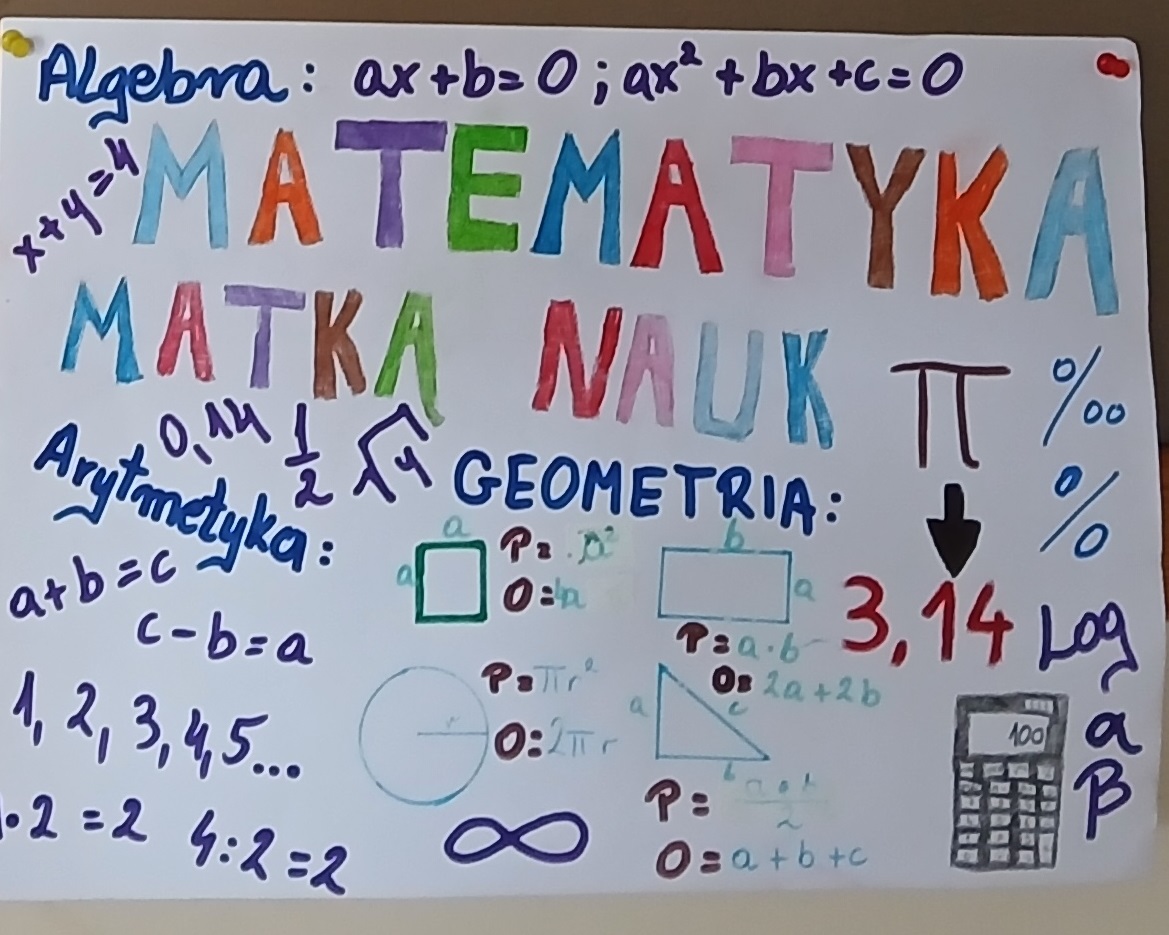 Algebra: ax+b=0; ax²+bx+c=0
x+y=4
MATEMATYKA
MATKA NAUK
π
‰
%
0,14 1/2 √4
Arytmetyka:
GEOMETRIA:
a+b=c
c-b=a
1, 2, 3, 4, 5...
·2=2 4:2=2
a
a
P= a²
O=4a
b
a
P=a·b
O=2a+2b
r
P=πr²
O=2πr
a
c
b
P= a·b/2
O=a+b+c
∞
3,14
Log
100
α
β